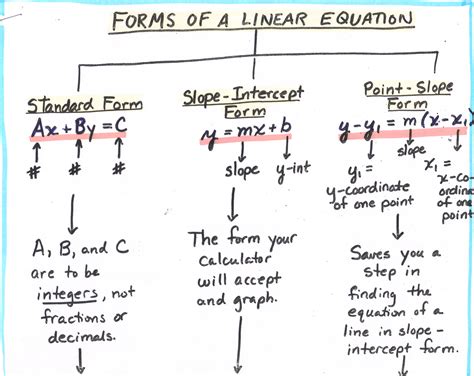 FORMS OF A LINEAR EQUATION
Standard Form
Ax + By = C
# # #
A, B, and C
are to be
integers, not
fractions or
decimals.
Slope-Intercept
Form
y = mx + b
slope y-int
The form your
calculator
will accept
and graph.
Point-Slope
Form
y-y₁ = m(x-x₁)
slope
y₁ =
y-coordinate
of one point
x₁ =
x-co-
ordina
of one
point
Saves you a
step in
finding the
equation of a
line in slope-
intercept form.